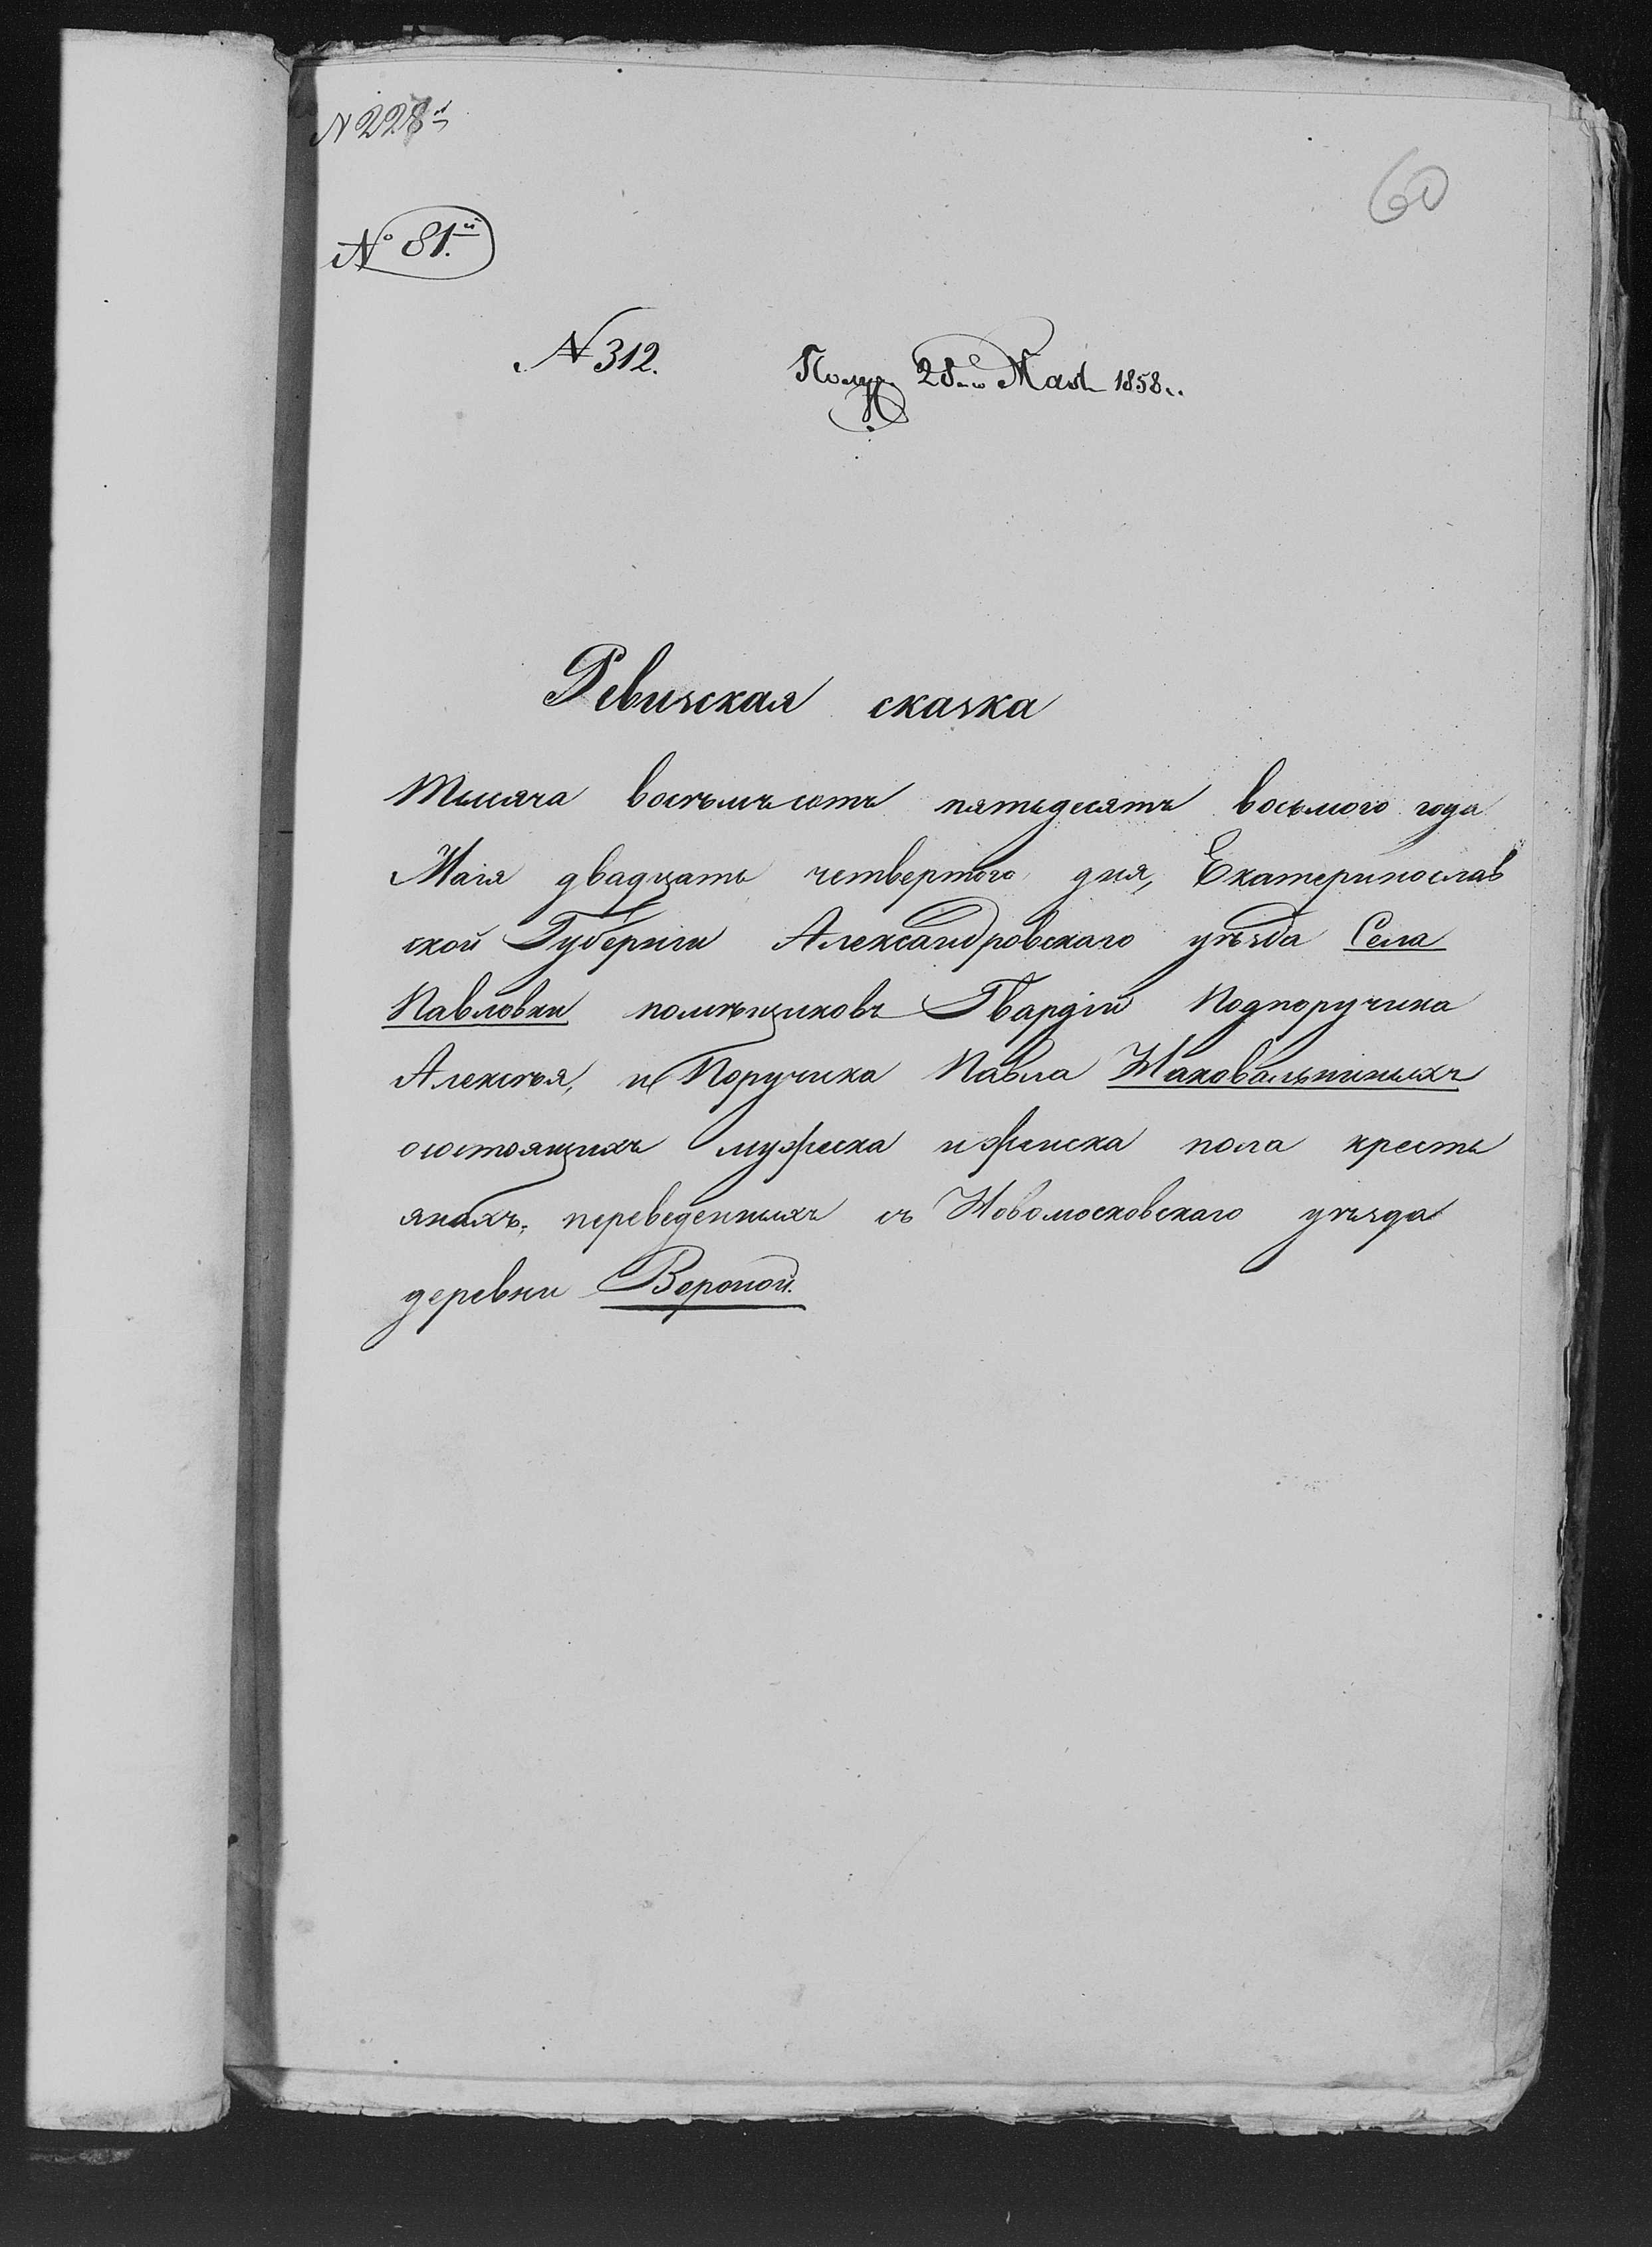 N 228й
60
№ 81.й
N 312.
Получ. 28го Мая 1858 г.
Ревизская сказка
Тысяча восъмъсотъ пятьдесятъ восьмого года
Маія двадцать четвертого дня, Екатеринослав
ской Губерніи Александровскаго уѣзда Села
Павловки помѣщиковъ Гвардіи Подпоручика
Алексѣя, и Поручика Павла
о состоящихъ мужеска и женска пола кресть
янахъ, переведенныхъ съ Новомосковскаго уѣзда
деревни Вороной.